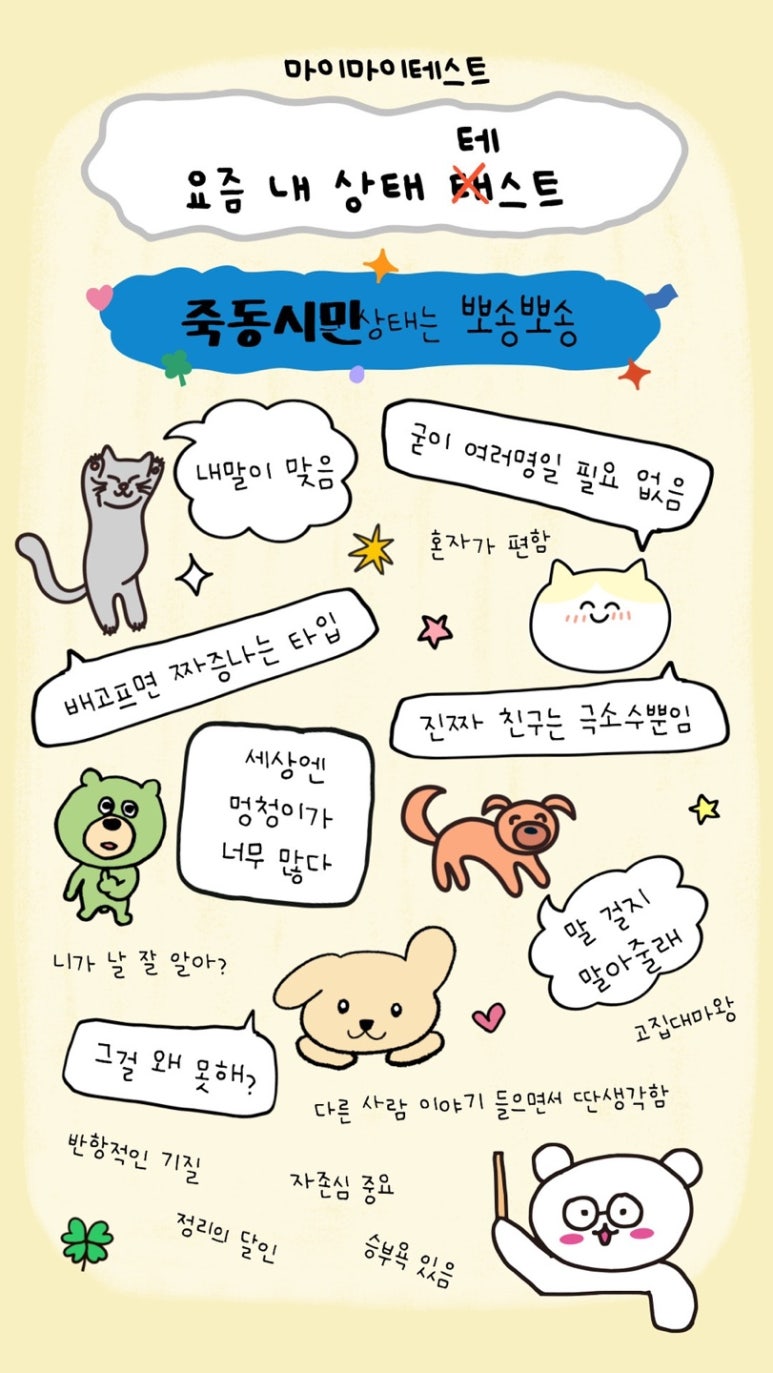 마이마이테스트
테
요즘 내 상태 태스트
죽동시민 상태는 뽀송뽀송
내말이 맞음
굳이 여러명일 필요 없음
혼자가 편함
배고프면 짜증나는 타입
진짜 친구는 극소수뿐임
세상엔
멍청이가
너무 많다
말 걸지
말아줄래
니가 날 잘 알아?
고집대마왕
그걸 왜 못해?
다른 사람 이야기 들으면서 딴생각함
반항적인 기질
자존심 중요
정리의 달인
승부욕 있음